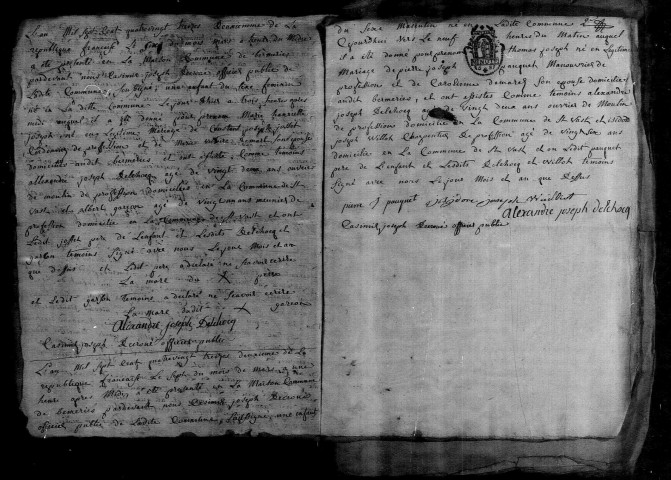 L'an Mil Sept Cent quatrevingt treize deuxieme de La
republique francaise Le Six du mois
a été presenté en La Maison Commune de bermeries
pardevant nous Casimir joseph Decroné officier public de
Ladite Commune, un enfant du sexe feminin
né en La ditte Commune Le jour d'hier à trois heures après
midi auquel il a été donné pour prenom Marie henriette
joseph né en Legitime Mariage de Constant joseph
de profession et de Marie
domiciliés audit bermeries et ont assistés Comme temoins
alexandre joseph delehocq agé de vingt deux ans ouvrier
de moulin de profession domicilié en La Commune de St
Vast et albert garçon agé de vingt ans meunier de
profession domicilié en La Commune de St Vast et ont
Ledit joseph pere de L'enfant et Lesdits Delehocq et
garçon temoins Signé avec nous Le jour Mois et an
que dessus et Ledit pere a declaré ne Savoir ecrire
La marc du X père
et Ledit garçon temoins a declaré ne Savoir ecrire
La marc dudit X garçon
Alexandre joseph Delehocq
Casimir joseph Decroné officier public
L'an Mil Sept Cent quatrevingt treize deuxieme de La
republique francaise Le Sept du mois de Mars à une
heure après Midy a été presenté en La Maison Commune
de bermeries pardevant nous Casimir joseph Decroné
officier public de Ladite Commune, un enfant
du Sexe Masculin né en Ladite Commune
Cejourdhui vers Le neuf heures du Matin auquel
il a été donné pour prenom thomas joseph né en Legitime
Mariage de pierre joseph pauquet Manouvrier de
profession et de Caroline demarez Son epouse domiciliés
audit bermeries, et ont assistés Comme temoins alexandre
joseph delehocq agé de vingt deux ans ouvrier de Moulin
de profession domicilié en La Commune de St Vast et isidore
joseph Willot Charpentier de profession agé de vingt ans
domicilié en La Commune de St Vast et ont Ledit pauquet
pere de L'enfant et Lesdits Delehocq et Willot temoins
Signé avec nous Le jour Mois et an que dessus
pierre j pauquet isidore joseph Willot
alexandre joseph delehocq
Casimir joseph Decroné officier public